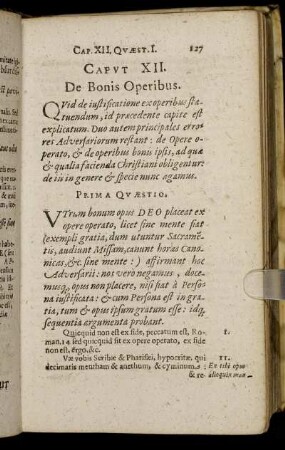 CAP. XII. QVÆST. I. 127
CAPVT XII.
De Bonis Operibus.
QVid de iustificatione ex operibus sta-
tuendum, id præcedente capite est
explicatum. Duo autem principales erro-
res Adversariorum restant: de Opere o-
perato, & de operibus bonis ipsis, ad quæ
& qualia facienda Christiani obligentur:
de iis in genere & specie nunc agamus.
PRIMA QVÆSTIO.
VTrum bonum opus DEO placeat ex
opere operato, licet sine mente fiat
(exempli gratia, dum utuntur Sacramẽ-
tis, audiunt Missam, canunt horas Cano-
nicas, &c. sine mente:) affirmant hoc
Adversarii: nos verò negamus, doce-
musq, opus non placere, nisi fiat à Perso-
na iustificata: & cum Persona est in gra-
tia, tum & opus ipsum gratum esse: idq;
sequentia argumenta probant.
Quicquid non est ex fide, peccatum est, Ro- I.
man. 14. sed quicquid fit ex opere operato, ex fide
non est, ergo. &c.
Væ vobis Scribæ & Pharisæi, hypocritæ, qui II.
decimatis mentham & anethum, & cyminum: Ex tali opere
& re-